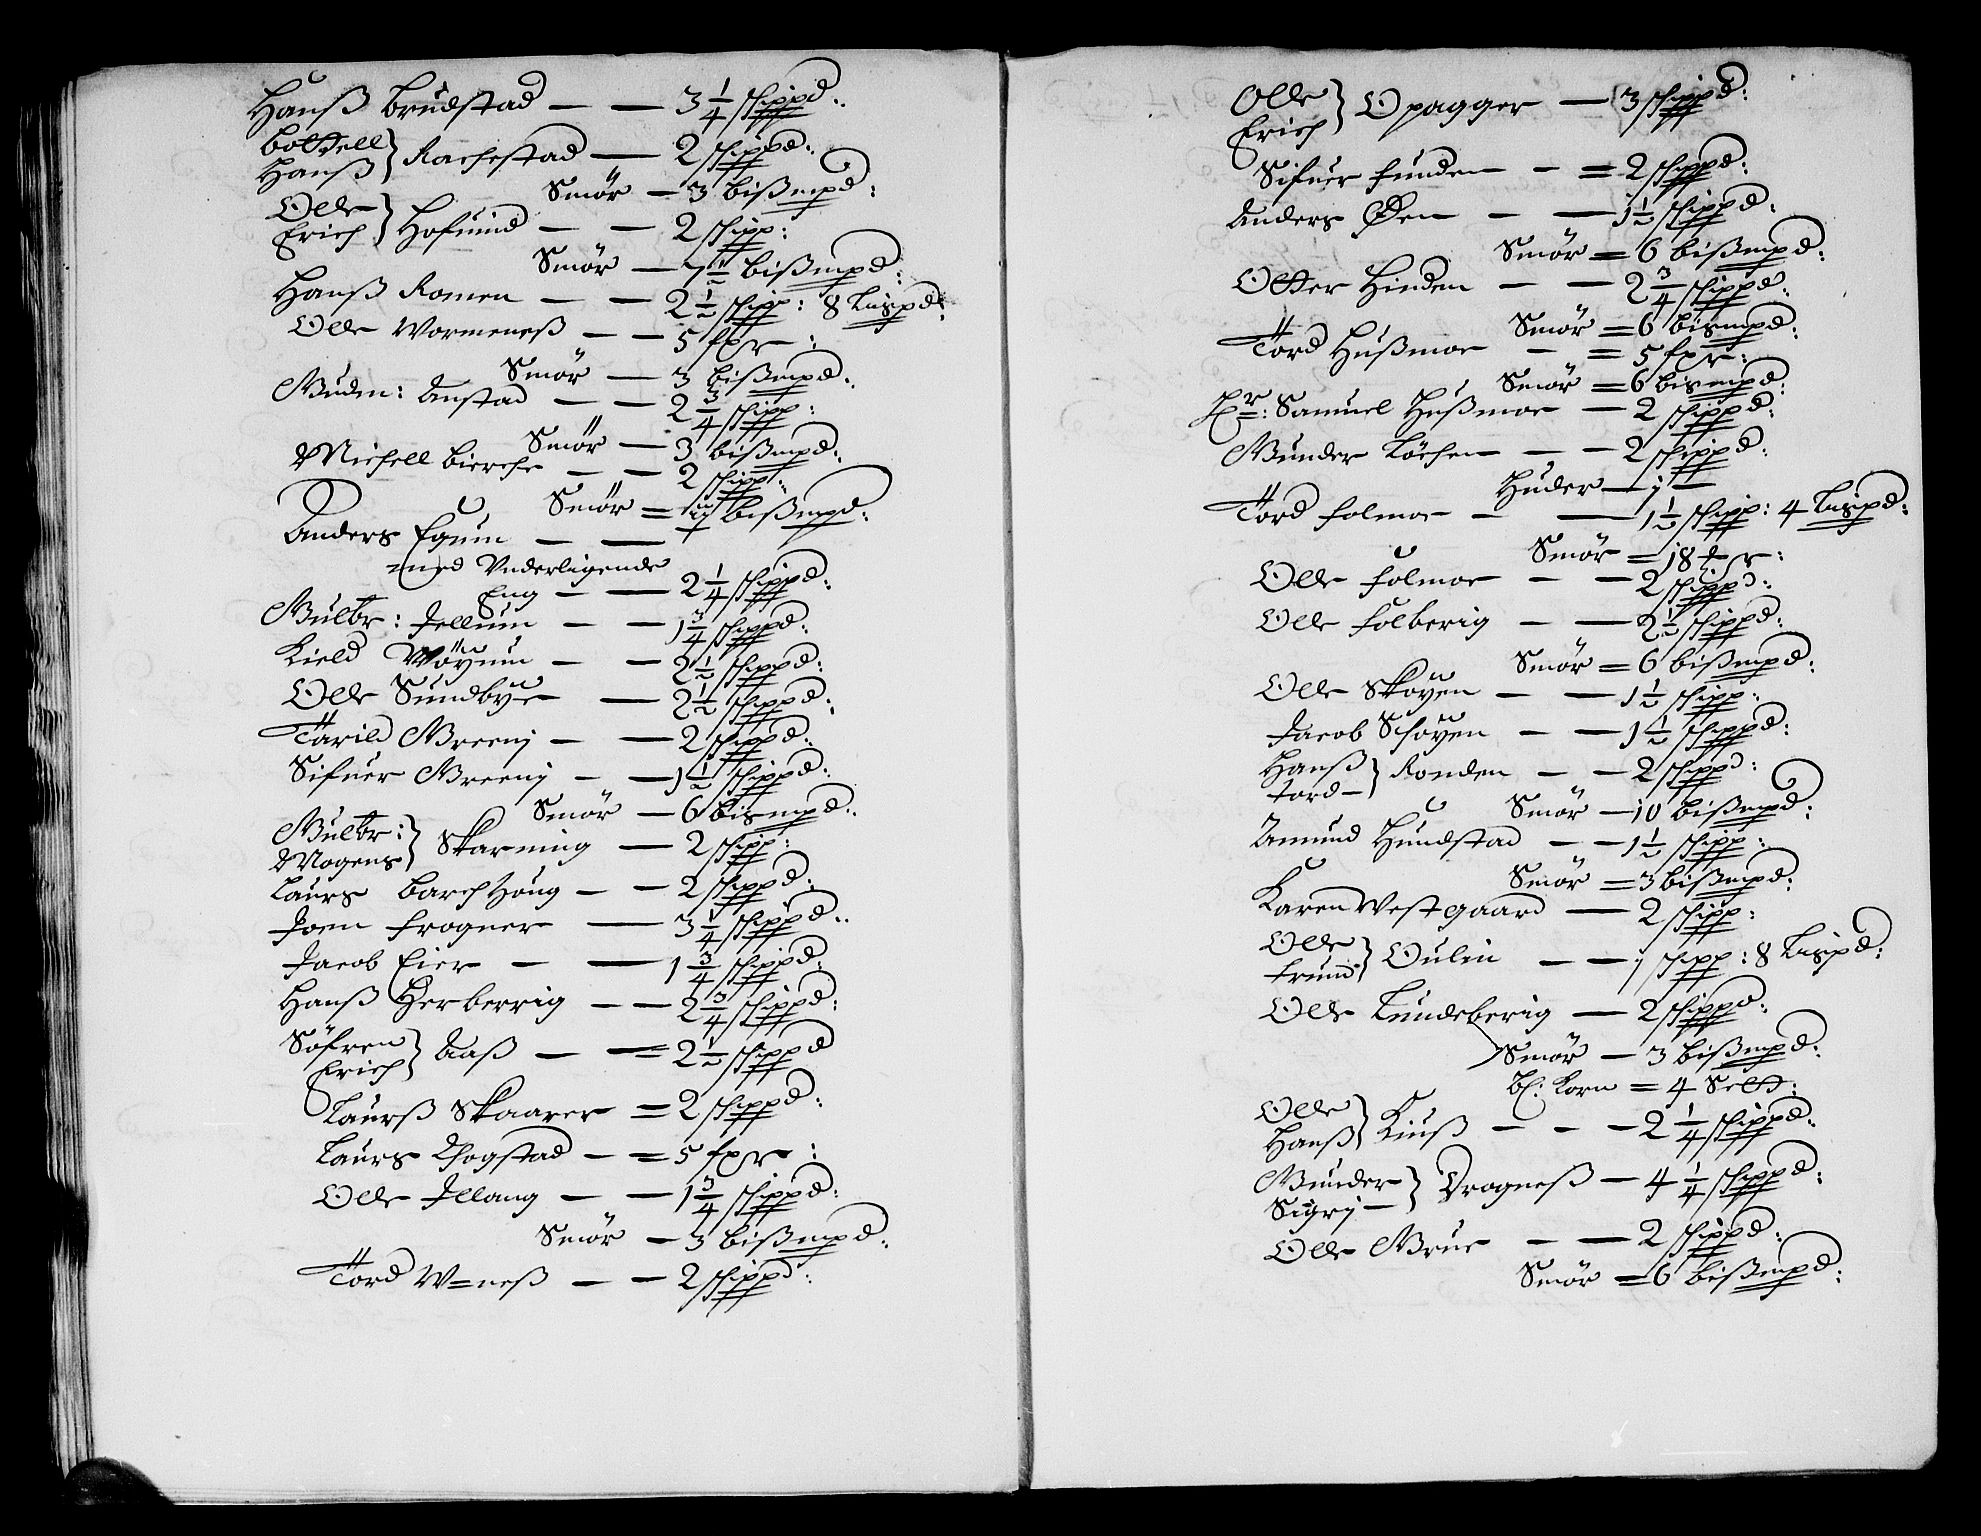 Hanß Brudstad — — 3 1/4 schippd:
Bottell } Rachestad — 2 schippd:
Hanß
Smör — 3 bißmpd:
Olle } Hofuind — — 2 schipp:
Erich
Smör — 7 1/2 bißmpd:
Hanß Romen — — 2 1/2 schipp: 8 Lispd:
Olle Wormeneß — — 5 fxr:
Smör — 3 bißmpd:
Guden: Austad — — 2 3/4 schipp:
Smör — 3 bißmpd:
Michell Bierche — — 2 schipp:
Smör = bißmpd:
Anders Egum — —
med Vnderligende
Eng — — 2 1/4 schippd:
Gulbr: Jellum — — 1 3/4 schippd:
Kield Wöÿum — — 2 1/2 schippd:
Olle Sundbÿe — 2 1/2 schippd:
Tarild Greenj — — 2 schippd:
Sifuer Greenj — — 1 1/2 schippd:
Smör — 6 bismpd:
Gulbr: } Skarning — 2 schipp:
Mogens
Laurs Barchhoug — — 2 schippd:
Joen Frogner — 3 1/4 schippd:
Jacob Eier — — 1 3/4 schippd:
Hanß Herberrig — — 2 3/4 schippd:
Söfren } Aaß — = 2 1/2 schippd
Erich
Laurß Skaarer = 2 schippd:
Laurs Chogstad — = 5 fxr:
Olle Illang — — 1 3/4 schippd:
Smör — 3 bißmpd:
Tord W=neß — — 2 schippd:
Olle } Opagger — 3 schippd:
Erich
Sifuer Funden — = 2 schippd:
Anders Øen — — 1 1/2 schippd:
Smör = 6 bißmpd:
Otter Hinden — — 2 3/4 schippd:
Smör = 6 bismpd:
Tord Hußmoe — = 5 fxr:
Smör = 6 bismpd:
Hr: Samuel Hußmoe — 2 schippd:
Gunder Löchen — — 2 schippd:
Huder — j —
Tord Folmoe — — 1 1/2 schipp: 4 Lispd:
Smör = 18
Olle Folmoe — — 2 schippd:
Olle Folberig — — 2 1/2 schippd:
Smör = 6 bißmpd:
Olle Sköÿen — — 1 1/2 schipp:
Jacob Schöÿen — — 1 1/2 schippd:
Hanß } Ronden — — 2 schippd:
Tord —
Smör — 10 bißmpd:
Amund Hundstad — — 1 1/2 schipp:
Smör = 3 bißmpd:
Karen Westgaard — 2 schipp:
Olle } Oulin — — 1 schipp: 8 Lispd:
Trund
Olle Lundeberig — 2 schippd:
Smör — 3 bißmpd:
Bl: Korn = 4 Sett:
Olle } Kiuß — — — 2 1/4 schippd:
Hanß
Gunder } Drogneß — 4 1/4 schippd:
Sigrj —
Olle Grue — — 2 schippd:
Smör = 6 bißmpd: